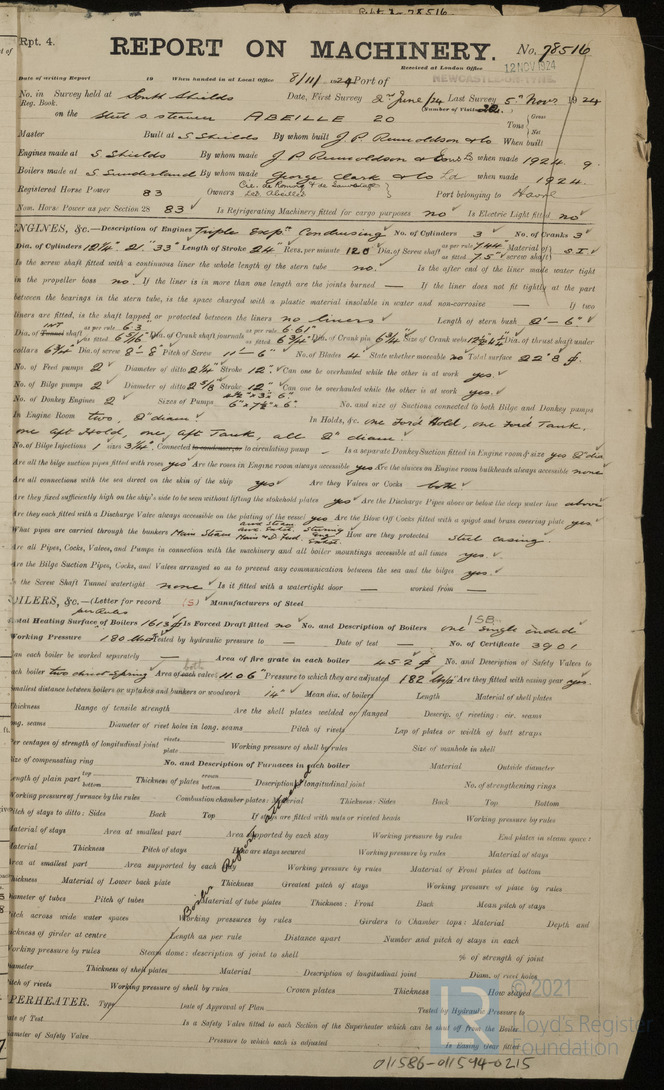 Rpt. 4.
REPORT ON MACHINERY.
No. 78516
12 NOV 1924
Received at London Office
NEWCASTLE-ON-TYNE
Date of writing Report 19 When handed in at Local Office 8/11/1924 Port of
No. in Survey held at South Shields Date, First Survey 2nd June/24 Last Survey 5th Novr 1924
Reg. Book. (Number of Visits
on the Steel s. steamer ABEILLE 20 Tons Gross Net
Master Built at S. Shields By whom built J. P. Rennoldson & Co When built
Engines made at S. Shields By whom made J. P. Rennoldson & Sons Ld when made 1924. 9.
Boilers made at S. Sunderland By whom made George Clark & Co Ld when made 1924.
Registered Horse Power 83 Owners Port belonging to Havre
Nom. Horse Power as per Section 28 83 Is Refrigerating Machinery fitted for cargo purposes no Is Electric Light fitted no
ENGINES, &c.—Description of Engines Triple Expn Condensing No. of Cylinders 3 No. of Cranks 3
Dia. of Cylinders 12¼" 21" 33" Length of Stroke 24" Revs. per minute 120 Dia. of Screw shaft as per rule 7.44" as fitted 7.5" Material of screw shaft S.I.
Is the screw shaft fitted with a continuous liner the whole length of the stern tube no. Is the after end of the liner made water tight
in the propeller boss no. If the liner is in more than one length are the joints burned — If the liner does not fit tightly at the part
between the bearings in the stern tube, is the space charged with a plastic material insoluble in water and non-corrosive — If two
liners are fitted, is the shaft lapped or protected between the liners no liners Length of stern bush 2'-6"
Dia. of Tunnel INT shaft as per rule 6.3 as fitted 6 5/16" Dia. of Crank shaft journals as per rule 6.61" as fitted 6¾" Dia. of Crank pin 6¾" Size of Crank webs Dia. of thrust shaft under
collars 6¾" Dia. of screw 8'-8" Pitch of Screw 11'-6" No. of Blades 4 State whether moveable no Total surface 22.8
No. of Feed pumps 2 Diameter of ditto 2¼" Stroke 12" Can one be overhauled while the other is at work yes
No. of Bilge pumps 2 Diameter of ditto Stroke 12" Can one be overhauled while the other is at work yes.
No. of Donkey Engines 2 Sizes of Pumps No. and size of Suctions connected to both Bilge and Donkey pumps
In Engine Room two, 2" diam. In Holds, &c. one Ford Hold, one Ford Tank,
one aft Hold, one, aft Tank, all 2" diam.
No. of Bilge Injections 1 sizes 3¼" Connected to condenser, or to circulating pump — Is a separate Donkey Suction fitted in Engine room & size yes 2" dia
Are all the bilge suction pipes fitted with roses yes Are the roses in Engine room always accessible yes Are the sluices on Engine room bulkheads always accessible none
Are all connections with the sea direct on the skin of the ship yes Are they Valves or Cocks both
Are they fixed sufficiently high on the ship's side to be seen without lifting the stokehold plates yes Are the Discharge Pipes above or below the deep water line above
Are they each fitted with a Discharge Valve always accessible on the plating of the vessel yes Are the Blow Off Cocks fitted with a spigot and brass covering plate yes
What pipes are carried through the bunkers Main Steam How are they protected steel casing.
Are all Pipes, Cocks, Valves, and Pumps in connection with the machinery and all boiler mountings accessible at all times yes.
Are the Bilge Suction Pipes, Cocks, and Valves arranged so as to prevent any communication between the sea and the bilges yes.
Is the Screw Shaft Tunnel watertight none Is it fitted with a watertight door — worked from —
BOILERS, &c.—(Letter for record (S) Manufacturers of Steel
Total Heating Surface of Boilers 1613 Is Forced Draft fitted no No. and Description of Boilers one single ended 1 SB
Working Pressure 180 lbs Tested by hydraulic pressure to — Date of test — No. of Certificate 3901
Can each boiler be worked separately — Area of fire grate in each boiler 45.2 No. and Description of Safety Valves to
each boiler two direct spring Area of each valve both 11.06" Pressure to which they are adjusted 182 lbs Are they fitted with easing gear yes.
Smallest distance between boilers or uptakes and bunkers or woodwork 14" Mean dia. of boilers Length Material of shell plates
Thickness Range of tensile strength Are the shell plates welded or flanged Descrip. of riveting: cir. seams
long. seams Diameter of rivet holes in long. seams Pitch of rivets Lap of plates or width of butt straps
Per centages of strength of longitudinal joint rivets plate Working pressure of shell by rules Size of manhole in shell
Size of compensating ring No. and Description of Furnaces in each boiler Material Outside diameter
Length of plain part top bottom Thickness of plates crown bottom Description of longitudinal joint No. of strengthening rings
Working pressure of furnace by the rules Combustion chamber plates: Material Thickness: Sides Back Top Bottom
Pitch of stays to ditto: Sides Back Top If stays are fitted with nuts or riveted heads Working pressure by rules
Material of stays Area at smallest part Area supported by each stay Working pressure by rules End plates in steam space:
Material Thickness Pitch of stays How are stays secured Working pressure by rules Material of stays
Area at smallest part Area supported by each stay Working pressure by rules Material of Front plates at bottom
Thickness Material of Lower back plate Thickness Greatest pitch of stays Working pressure of plate by rules
Diameter of tubes Pitch of tubes Material of tube plates Thickness: Front Back Mean pitch of stays
Pitch across wide water spaces Working pressures by rules Girders to Chamber tops: Material Depth and
thickness of girder at centre Length as per rule Distance apart Number and pitch of stays in each
Working pressure by rules Steam dome: description of joint to shell % of strength of joint
Diameter Thickness of shell plates Material Description of longitudinal joint Diam. of rivet holes
Pitch of rivets Working pressure of shell by rules Crown plates Thickness How stayed
Boiler Report attached
SUPERHEATER. Type Date of Approval of Plan Tested by Hydraulic Pressure to
Date of Test Is a Safety Valve fitted to each Section of the Superheater which can be shut off from the Boiler
Diameter of Safety Valve Pressure to which each is adjusted Is Easing Gear fitted
© 2021
LR
Lloyd's Register
Foundation
011586-011594-0215